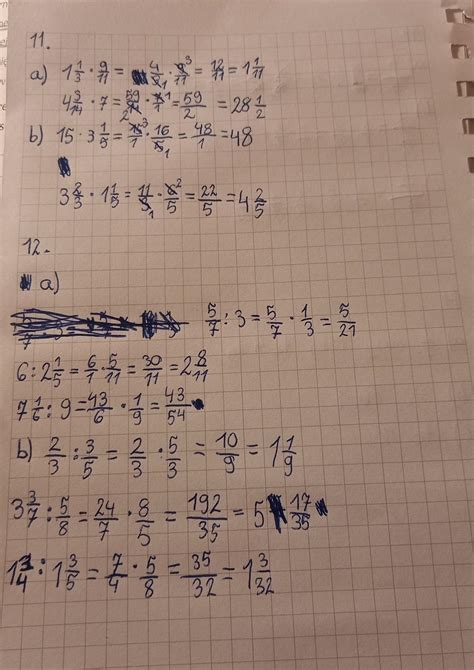 11.
a) 1 1/3 · 9/11 = 4/3 1 · 9 3/11 = 12/11 = 1 1/11
4 3/14 · 7 = 59/14 2 · 7 1/1 = 59/2 = 28 1/2
b) 15 · 3 1/5 = 15 3/1 · 16/5 1 = 48/1 = 48
3 2/3 · 1 1/5 = 11/3 1 · 6 2/5 = 22/5 = 4 2/5
12.
a)
5/7 : 3 = 5/7 · 1/3 = 5/21
6 : 2 1/5 = 6/1 · 5/11 = 30/11 = 2 8/11
7 1/6 : 9 = 43/6 · 1/9 = 43/54
b) 2/3 : 3/5 = 2/3 · 5/3 = 10/9 = 1 1/9
3 3/7 : 5/8 = 24/7 · 8/5 = 192/35 = 5 17/35
1 3/4 : 1 3/5 = 7/4 · 5/8 = 35/32 = 1 3/32